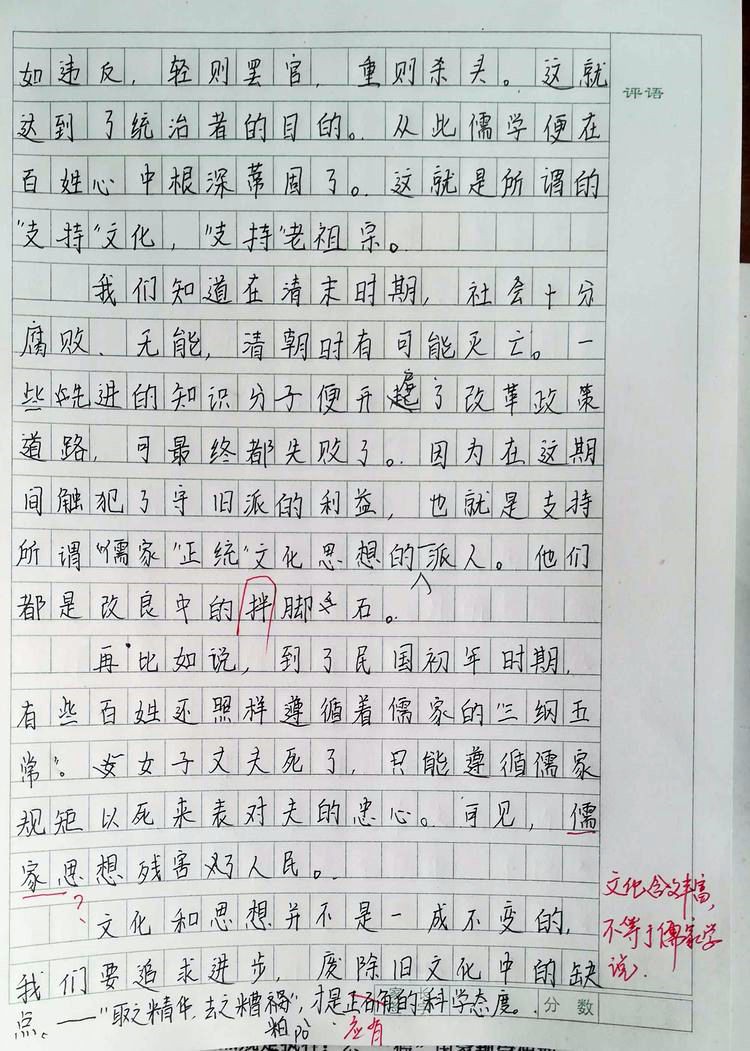 如违反，轻则罢官，重则杀头。这就
评语
达到了统治者的目的。从此儒学便在
百姓心中根深蒂固了。这就是所谓的
"支持"文化，"支持"老祖宗。
我们知道在清末时期，社会十分
腐败、无能，清朝时有可能灭亡。一
些先进的知识分子便开了改革政策
道路，可最终都失败了。因为在这期
间触犯了守旧派的利益，也就是支持
所谓"儒家"正统"文化思想的一派人。他们
都是改良中的拌脚石。
再比如说，到了民国初年时期，
有些百姓还照样遵循着儒家的"三纲五
常"。女子丈夫死了，只能遵循儒家
规矩以死来表对夫的忠心。可见，儒
家思想残害了人民。
?
文化含义丰富，
不等于儒家学
说.
文化和思想并不是一成不变的，
我们要追求进步，废除旧文化中的缺
点。——"取之精华，去之糟祸"，才是正确的科学态度。
分数
粕 pò
应有